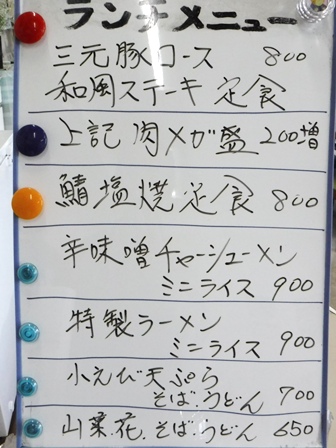 ランチメニュー
三元豚ロース 800
和風ステーキ定食
上記肉メガ盛 200増
鯖塩焼定食 800
辛味噌チャーシューメン
ミニライス 900
特製ラーメン
ミニライス 900
小えび天ぷら
そば.うどん 700
山菜.花.そば.うどん 650